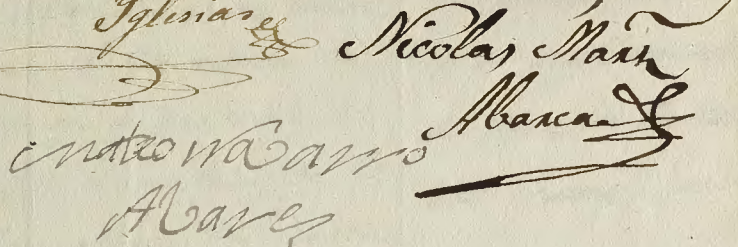 Yglesias
Nicolas Marn
Abarca
Mateo Navarro
Alvarez